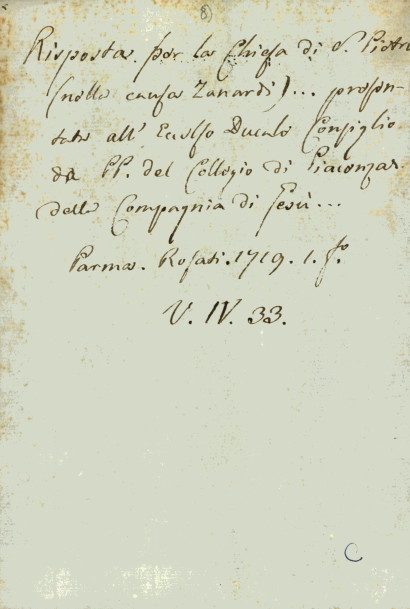 8)
Risposta per la Chiesa di S. Pietro
(nella causa Zanardi)... presen-
tata all' Eccelso Ducale Consiglio
da PP. del Collegio di Piacenza
della Compagnia di Gesù...
Parma. Rosati. 1719. 1. fo.
V. IV. 33.
C